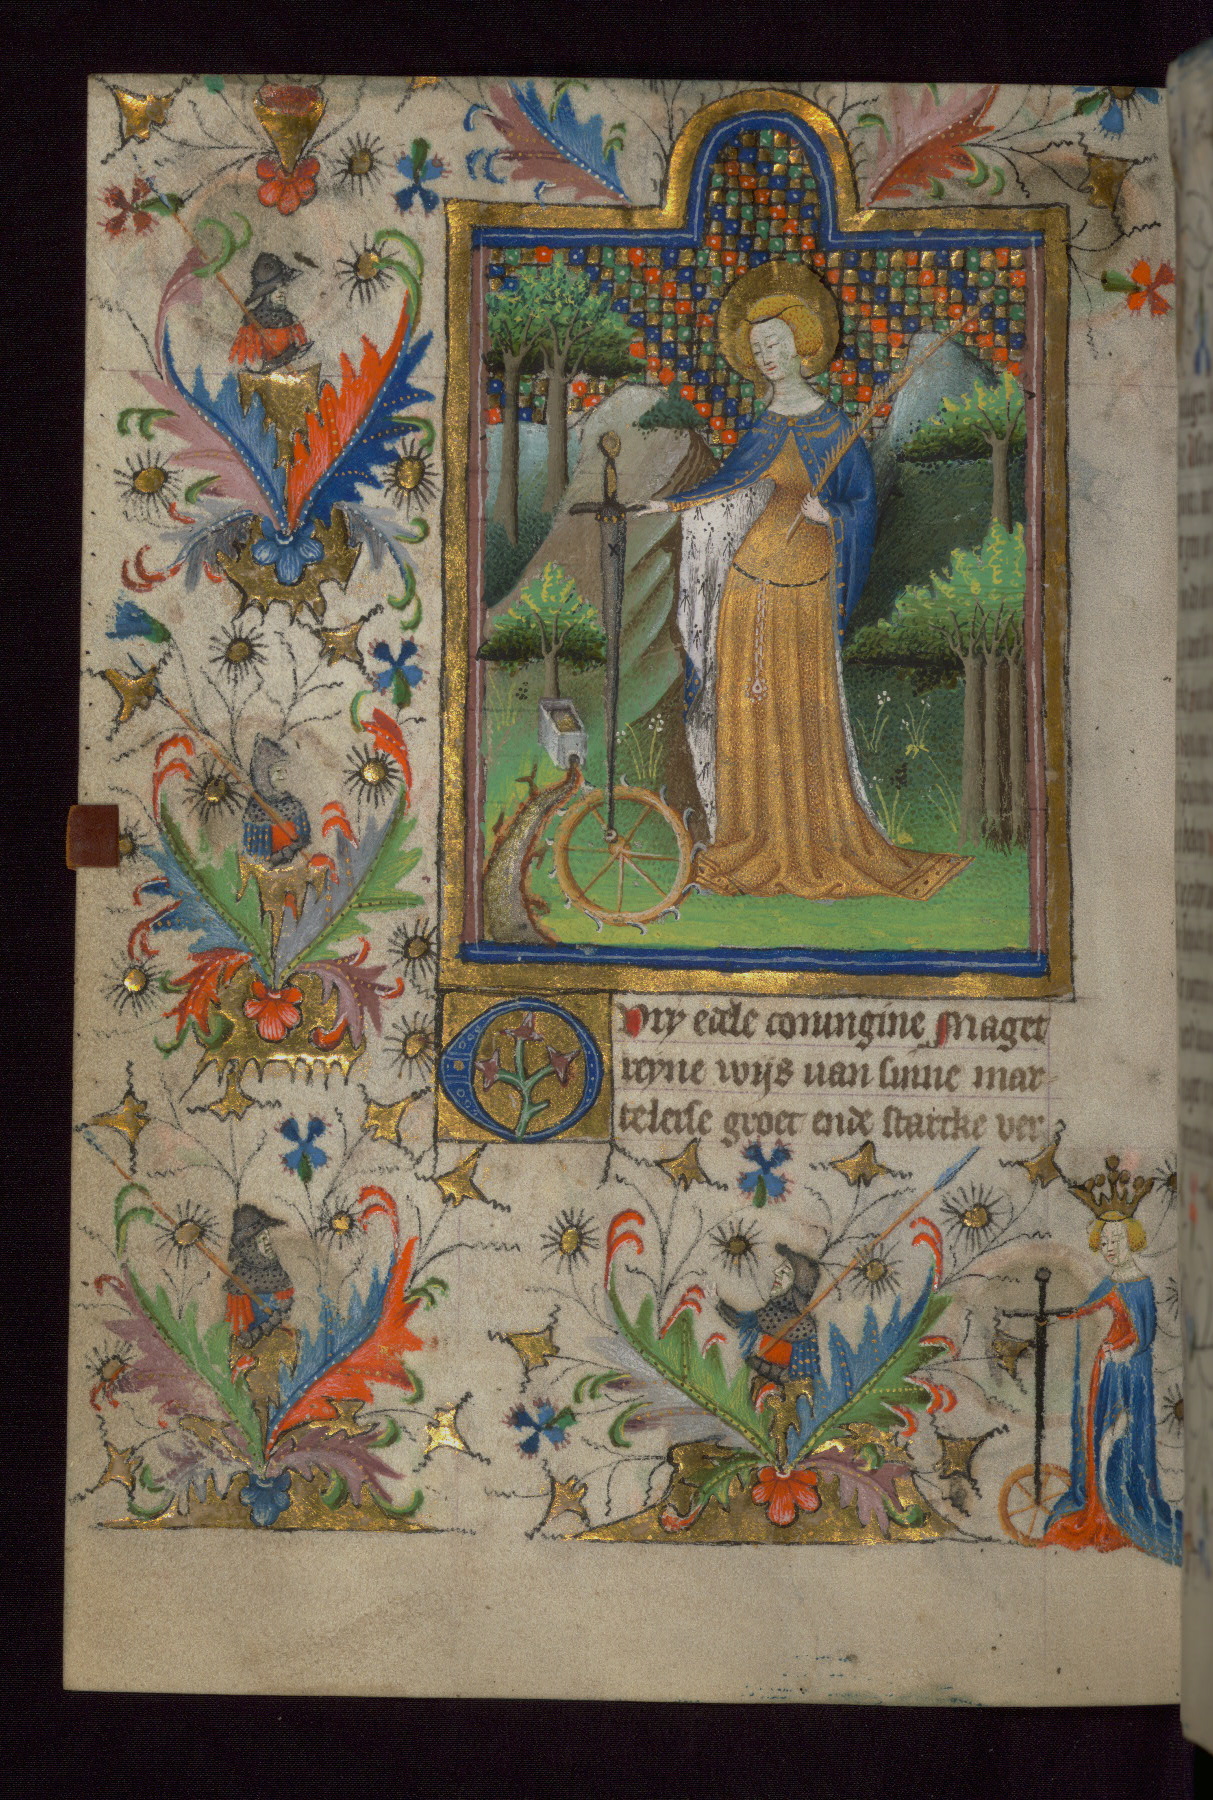 O Vry edele coningine Maget
reyne wijs van sinne mar-
telerse groet ende starcke ver